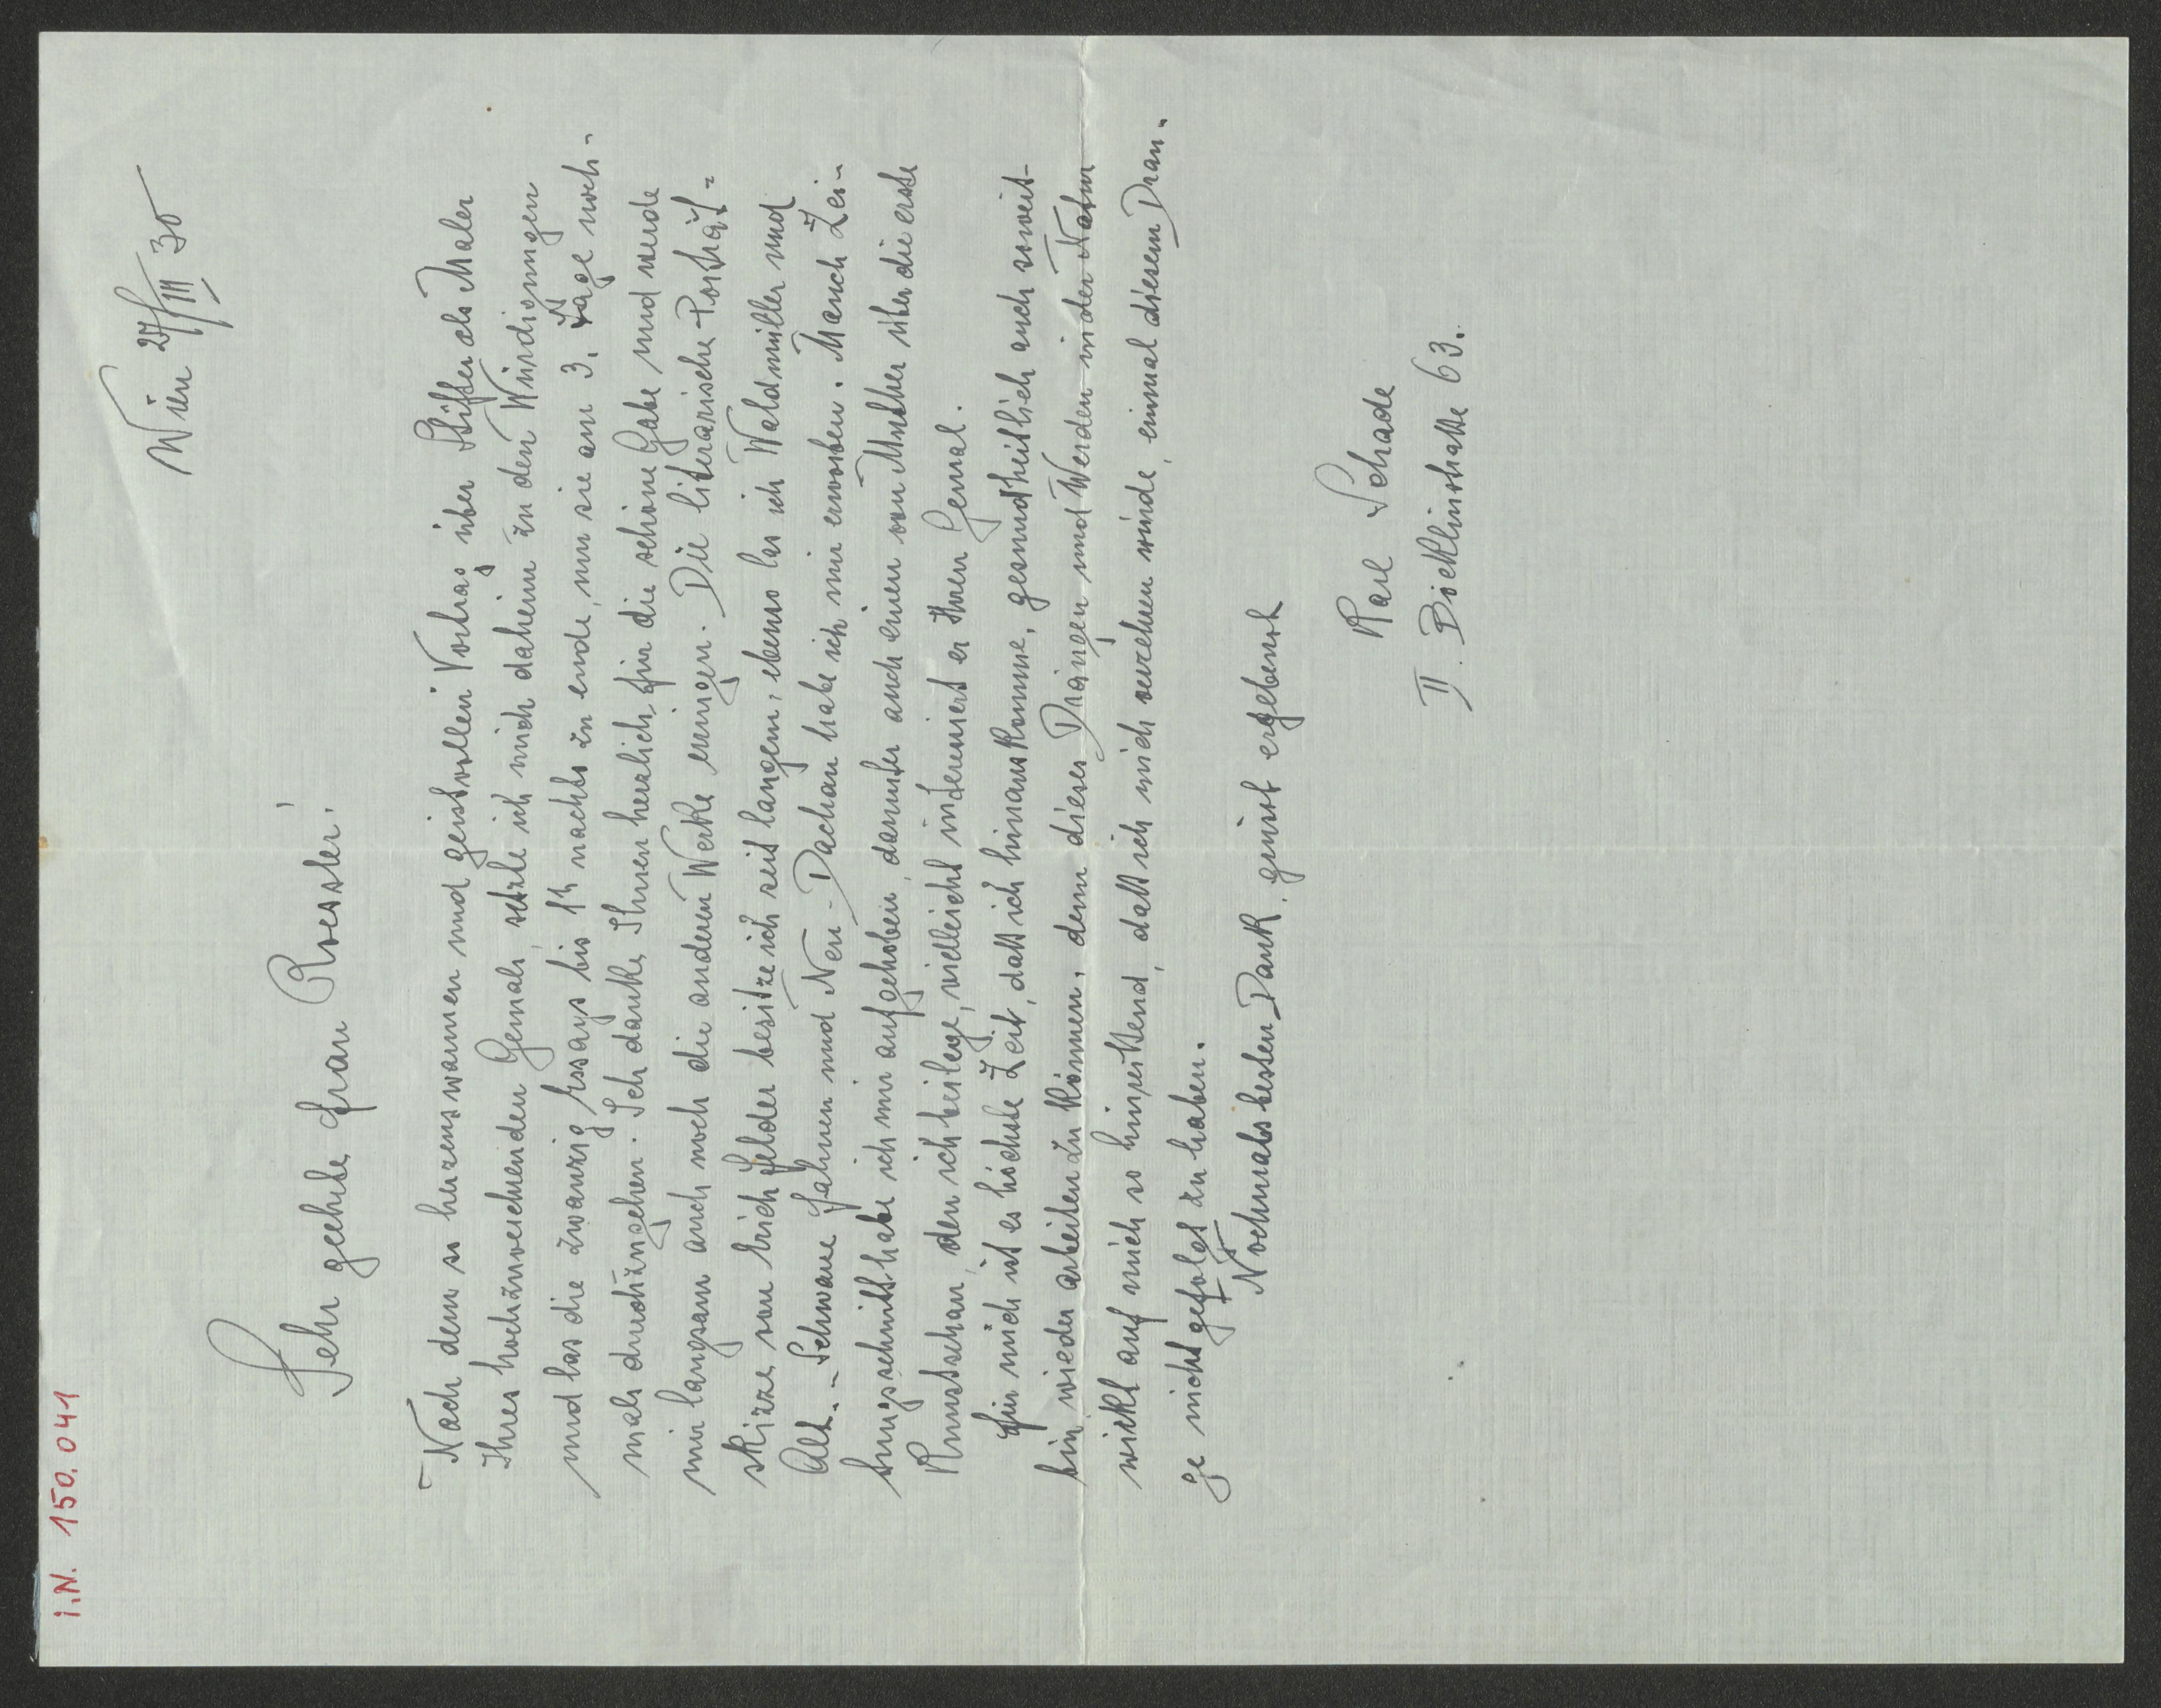 I.N. 150.041
Wien 27/III 30
Sehr geehrte Frau Roessler!
Nach dem so herzenswarmen und geistvollen Vortrag über Stifter als Maler
Ihres hochzuverehrenden Gemals, setzte ich mich daheim zu den Würdigungen
und las die zwanzig Essays bis 1h nachts zu ende, um sie am 3. Tage noch-
mals durchzugehen. Ich danke Ihnen herzlich für die schöne Gabe und werde
mir langsam auch noch die anderen Werke eringen. Die literarische Porträt-
skizze von Erich Felder besitze ich seit langem, ebenso las ich Waldmüller und
Alt. - Schwarze Fahnen und Neu-Dachau habe ich mir erworben. Manch Zei-
tungsschnitt habe ich mir aufgehoben, darunter auch einen von Muther über die erste
Kunstschau, den ich beilege, vielleicht interessiert er Ihren Gemal.
Für mich ist es höchste Zeit, daß ich hinauskomme, gesundheitlich auch soweit
bin wieder arbeiten zu können, denn dieses Drängen und Werden in der Natur
wirkt auf mich so hinreißend, daß ich mich verzehren würde, einmal diesem Dran-
ge nicht gefolgt zu haben.
Nochmals besten Dank, grüsst ergebenst
Karl Schade
II. Böcklinstraße 63.